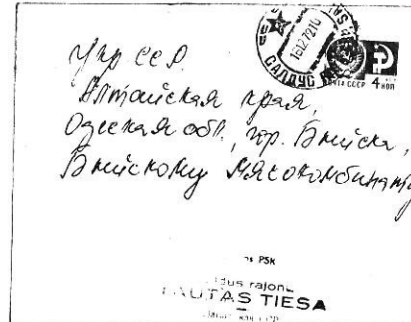 САЛДУС
16127210
ПОЧТА СССР 4 КОП
Укр ССР
Алтайская края,
Одеская обл., гр. Бийска,
Бийскому Мясокомбинату
PSK
dus rajona
TAUTAS TIESA